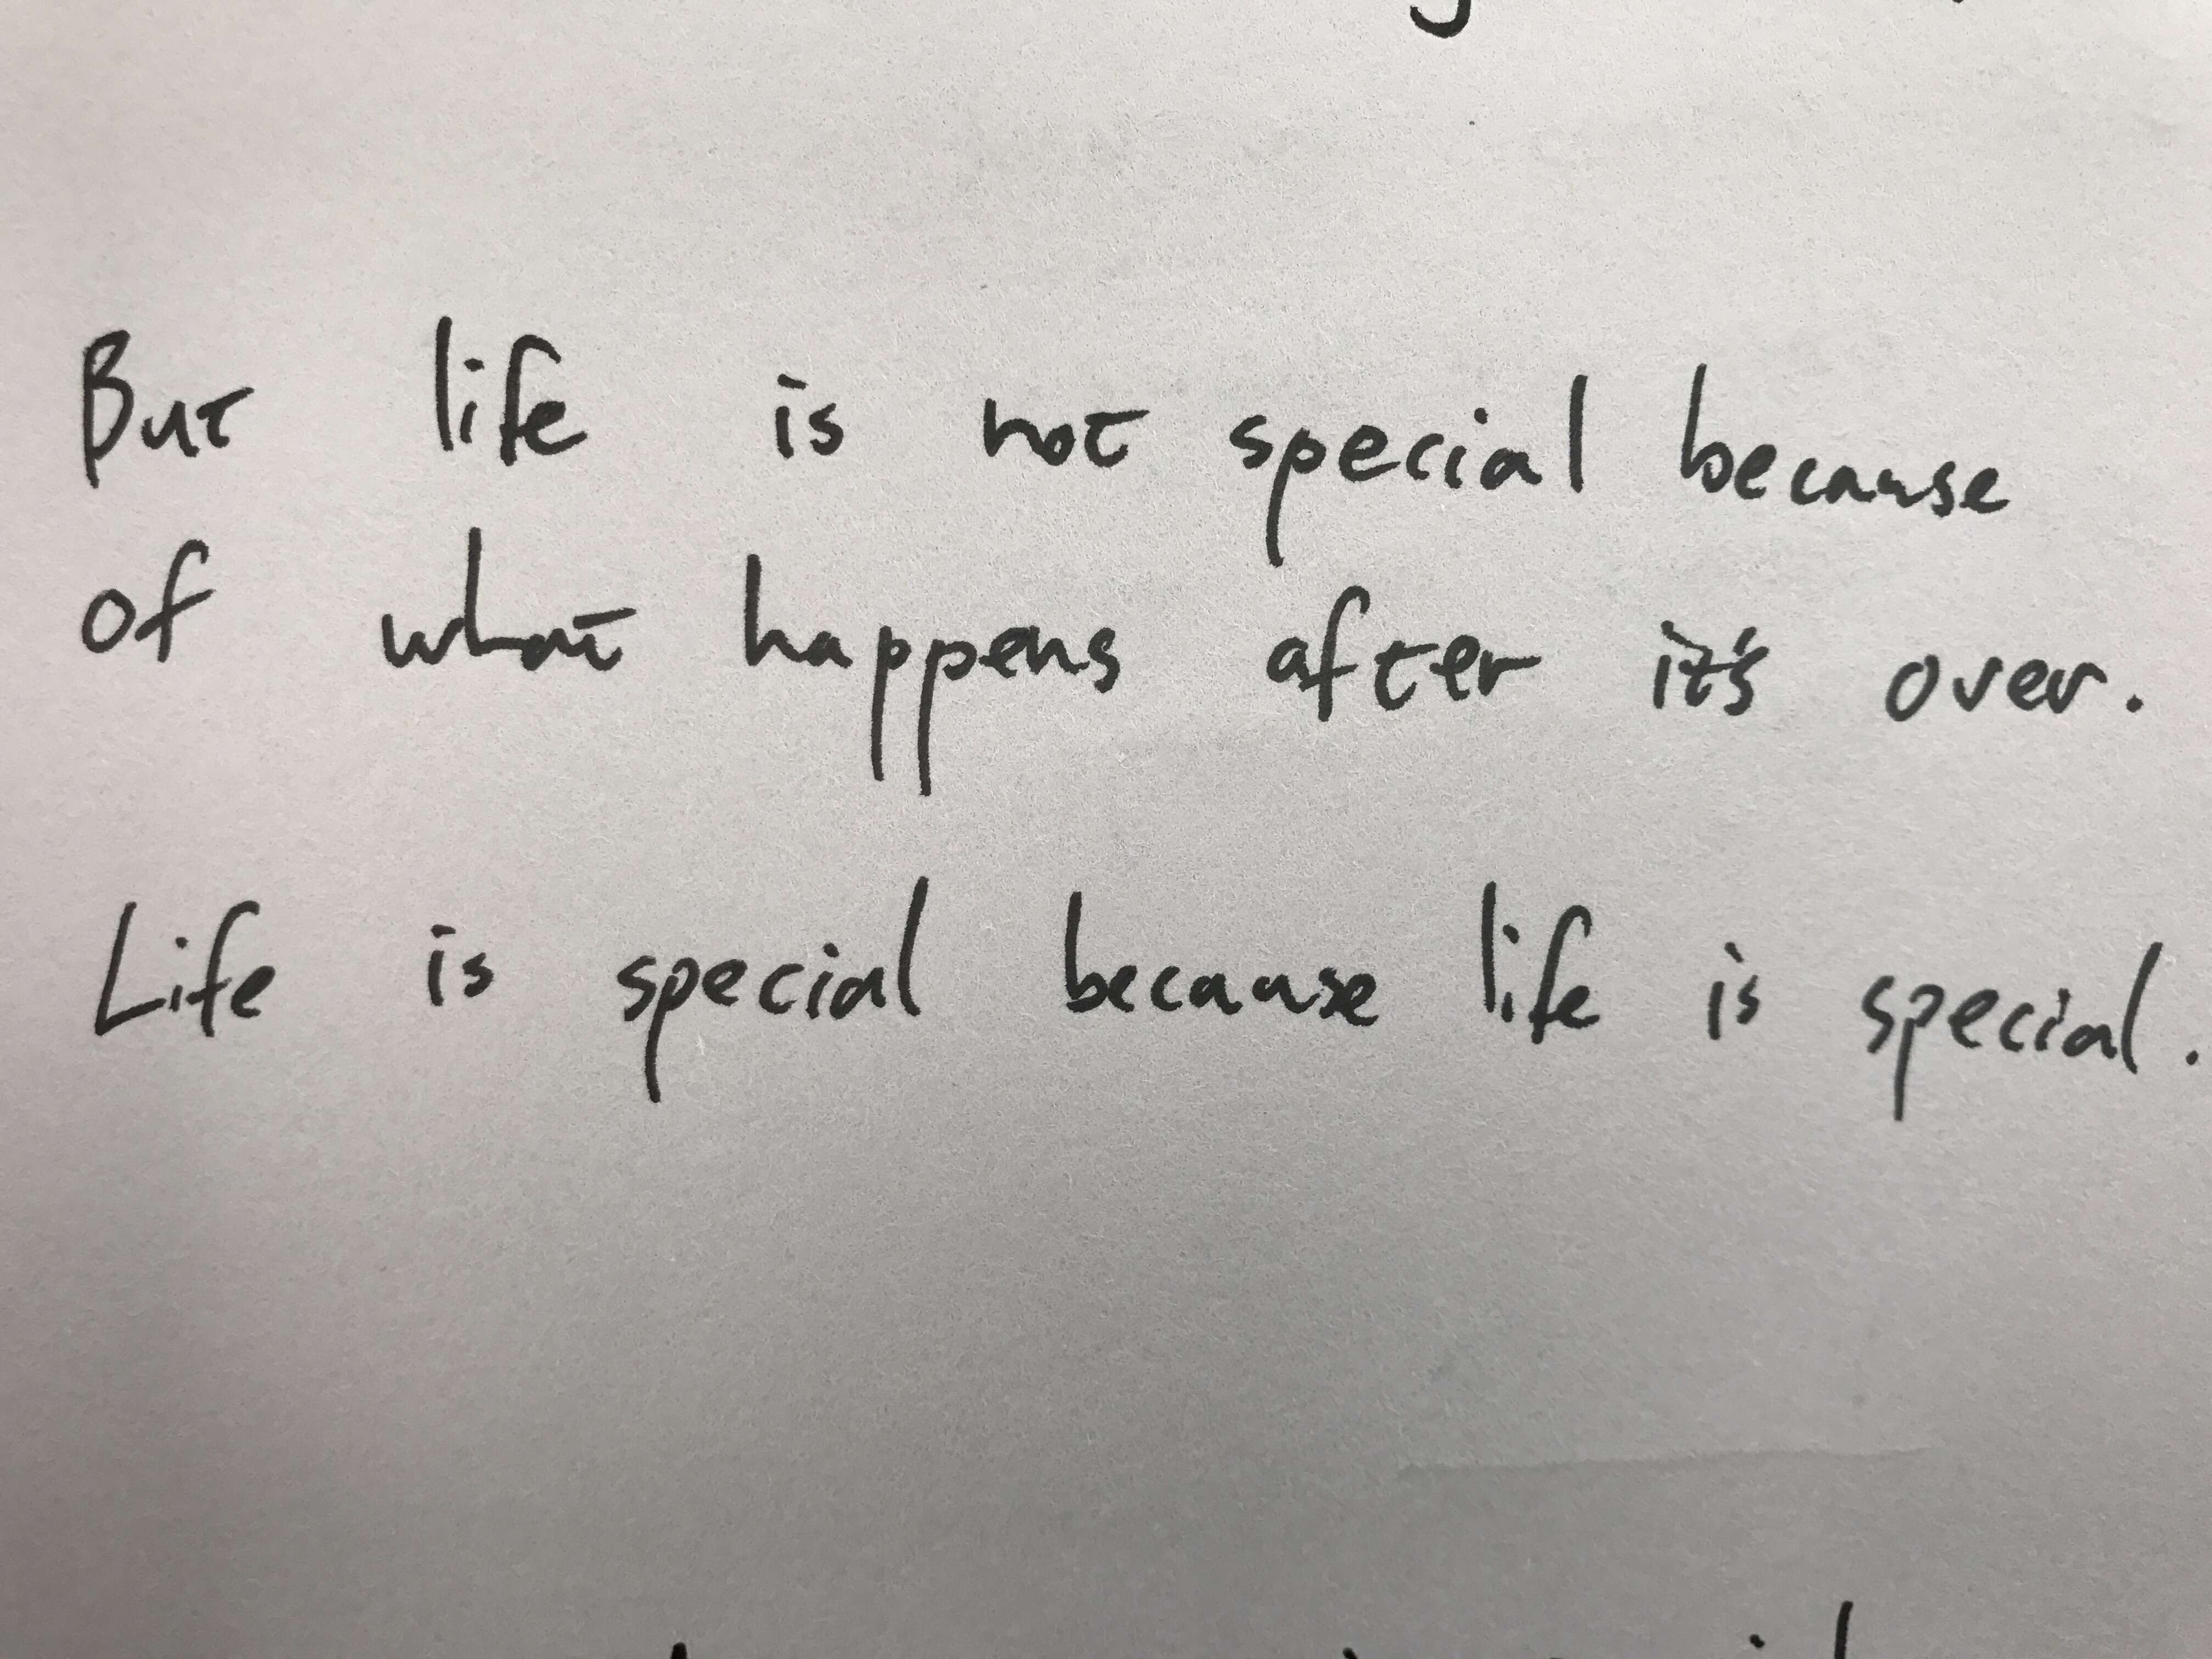 But life is not special because
of what happens after it's over.
Life is special because life is special.